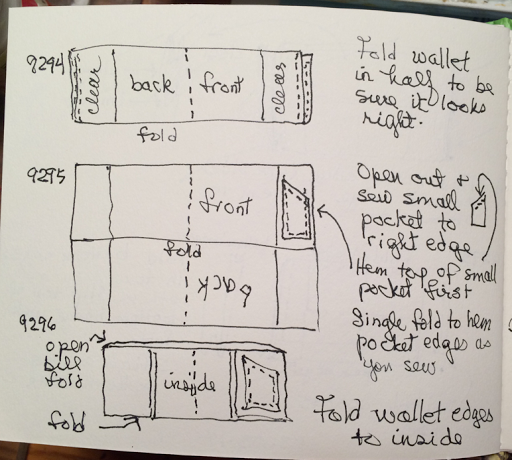 9294
clear
back
front
clear
fold
Fold wallet
in half to be
sure it looks
right.
9295
front
fold
back
Open out +
sew small
pocket to
right edge
Hem top of small
pocket first
Single fold to hem
pocket edges as
you sew
9296
open
bill
fold
inside
fold
Fold wallet edges
to inside